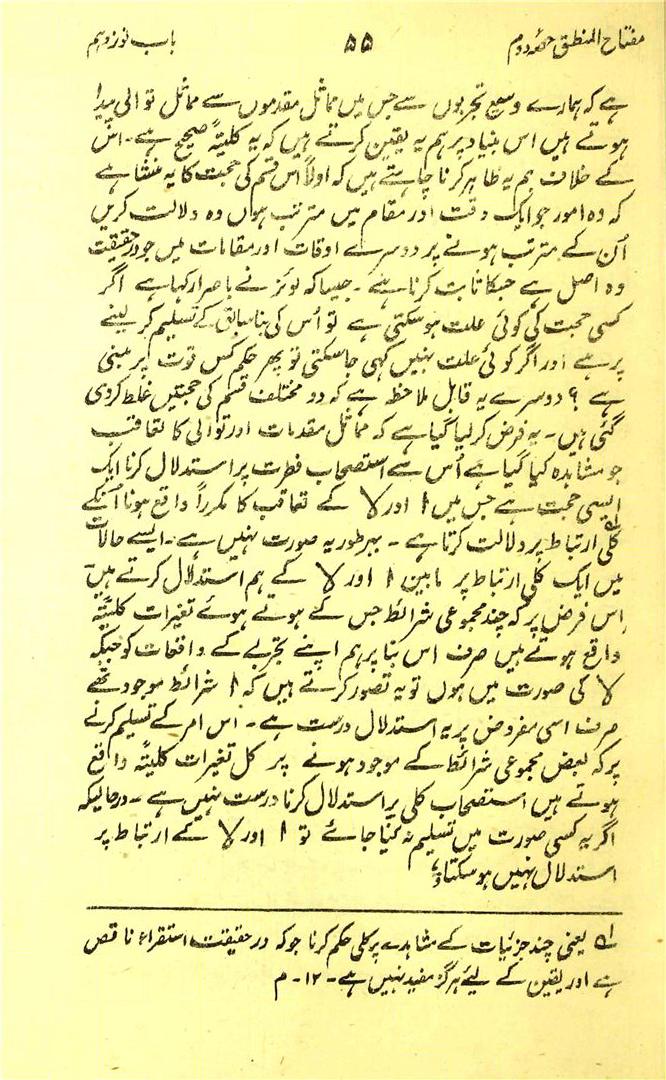 مفتاح المنطق حصۂ دوم ۵۵ باب نوزدہم
ہے کہ ہمارے وسیع تجربوں سے جس میں مماثل مقدموں سے مماثل توالی پیدا
ہوتے ہیں اس بنیاد پر ہم یہ یقین کرتے ہیں کہ یہ کلیتہً صحیح ہے۔ اس
کے خلاف ہم یہ ظاہر کرنا چاہتے ہیں کہ اولاً اس قسم کی حجت کا یہ منشا ہے
کہ وہ امور جو ایک وقت اور مقام میں مترتب ہوں وہ دلالت کریں
اُن کے مترتب ہونے پر دوسرے اوقات اور مقامات میں جو درحقیقت
وہ اصل ہے جسکا ثابت کرنا ہے۔ جیسا کہ لوئز نے باصرار کہا ہے اگر
کسی حجت کی کوئی علت ہو سکتی ہے تو اُس کی بنا سابق کے تسلیم کر لینے
پر ہے اور اگر کوئی علت نہیں کہی جا سکتی تو پھر حکم کس قوت پر مبنی
ہے ؟ دوسرے یہ قابل ملاحظہ ہے کہ دو مختلف قسم کی حجتیں غلط کر دی
گئی ہیں۔ یہ فرض کر لیا گیا ہے کہ مماثل مقدمات اور توالی کا تعاقب
جو مشاہدہ کیا گیا ہے اُس سے استصحاب فطرت پر استدلال کرنا ایک
ایسی حجت ہے جس میں ا اور لا کے تعاقب کا مکرراً واقع ہونا اُنکے
کلی ارتباط پر دلالت کرتا ہے۔ بہرطور یہ صورت نہیں ہے۔ ایسے حالات
میں ایک کلی ارتباط پر مابین ا اور لا کے ہم استدلال کرتے ہیں
اس فرض پر کہ چند مجموعی شرائط جس کے ہوتے ہوئے تغیرات کلیتہً
واقع ہوتے ہیں صرف اس بنا پر ہم اپنے تجربے کے واقعات کو جبکہ
لا کی صورت میں ہوں تو یہ تصور کرتے ہیں کہ ا شرائط موجود تھے
صرف اسی مفروض پر یہ استدلال درست ہے۔ اس امر کے تسلیم کرنے
پر کہ بعض مجموعی شرائط کے موجود ہونے پر کل تغیرات کلیتہً واقع
ہوتے ہیں استصحاب کلی پر استدلال کرنا درست نہیں ہے۔ درحالیکہ
اگر یہ کسی صورت میں تسلیم نہ کیا جائے تو ا اور لا کے ارتباط پر
استدلال نہیں ہو سکتا
لہ یعنی چند جزئیات کے مشاہدے پر کلی حکم کرنا جو کہ درحقیقت استقراء ناقص
ہے اور یقین کے لیئے ہرگز مفید نہیں ہے۔ ۱۲۔ م